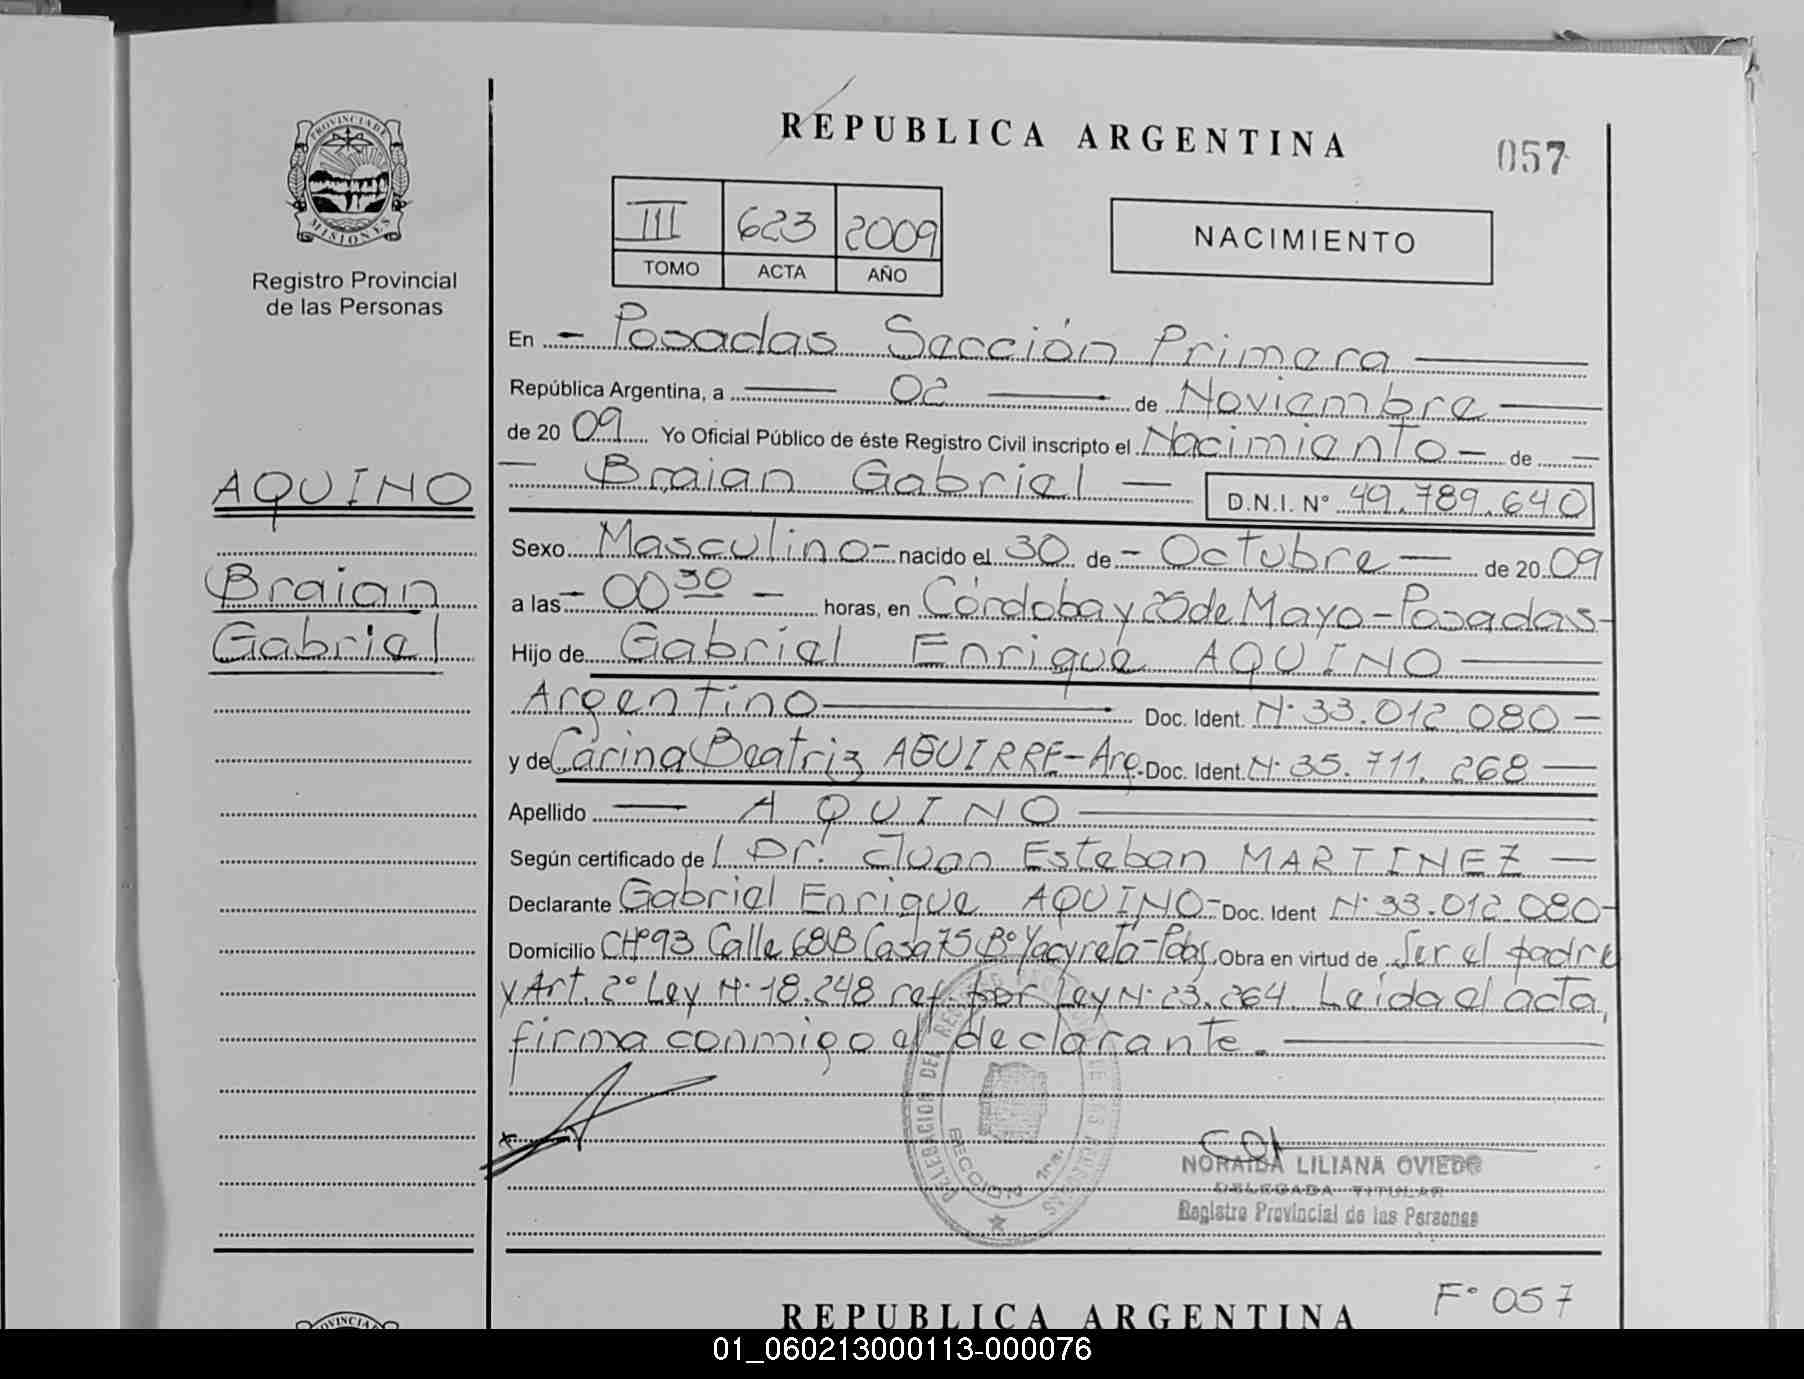 PROVINCIA DE
MISIONES
Registro Provincial
de las Personas
AQUINO
Braian
Gabriel
REPUBLICA ARGENTINA
057
III 623 2009
TOMO ACTA AÑO
NACIMIENTO
En - Posadas Sección Primera
República Argentina, a 02 de Noviembre
de 20 09 Yo Oficial Público de éste Registro Civil inscripto el Nacimiento - de
Braian Gabriel - D.N.I. N° 49.789.640
Sexo Masculino - nacido el 30 de - Octubre - de 20 09
a las - 00 30 - horas, en Córdoba y 25 de Mayo - Posadas -
Hijo de Gabriel Enrique AQUINO
Argentino Doc. Ident. N° 33.012.080 -
y de Carina Beatriz AGUIRRE - Arg. Doc. Ident. N° 35.711.268
Apellido AQUINO
Según certificado de Dr. Juan Esteban MARTINEZ -
Declarante Gabriel Enrique AQUINO - Doc. Ident N° 33.012.080 -
Domicilio CH°93 Calle 68B Casa 75 B° Yacyretá - Pdas. Obra en virtud de Ser el padre
y Art. 2° Ley N° 18.248 ref. por Ley N° 23.264. Leída el acta,
firma conmigo el declarante.
DELEGACION DEL
SECCION 1ra.
NORAIDA LILIANA OVIEDO
DELEGADA TITULAR
Registro Provincial de las Personas
F° 057
PROVINCIA DE
REPUBLICA ARGENTINA
01_060213000113-000076